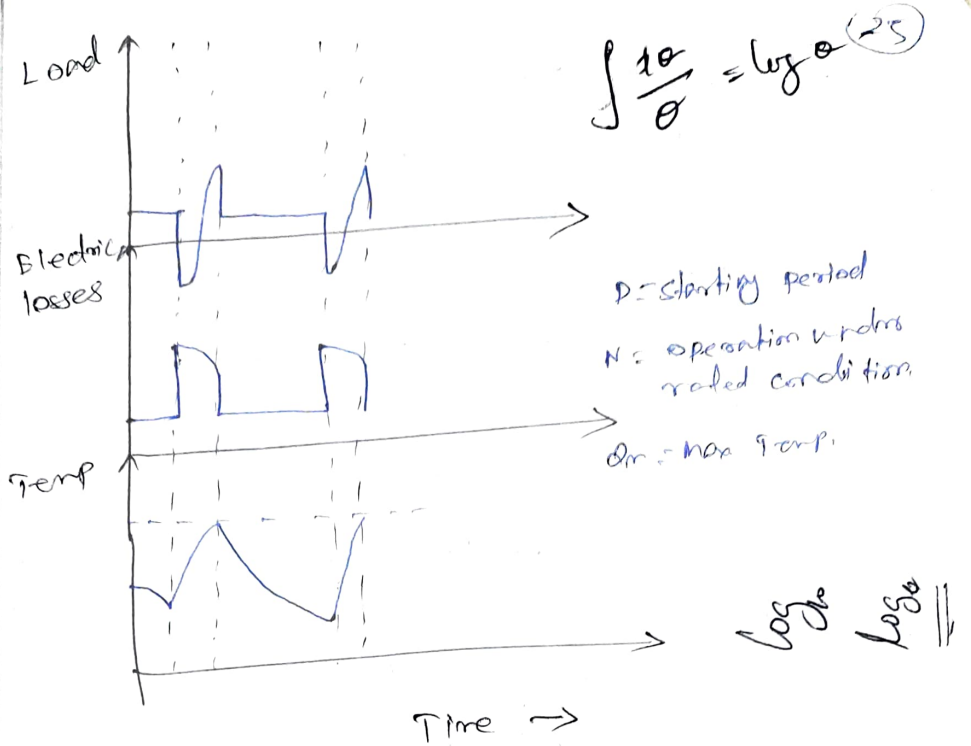 Load
∫ dθ/θ = log θ
25
Electric
losses
D = starting period
N = operation under
rated condition.
Temp
θm = max Temp.
log
log
Time →